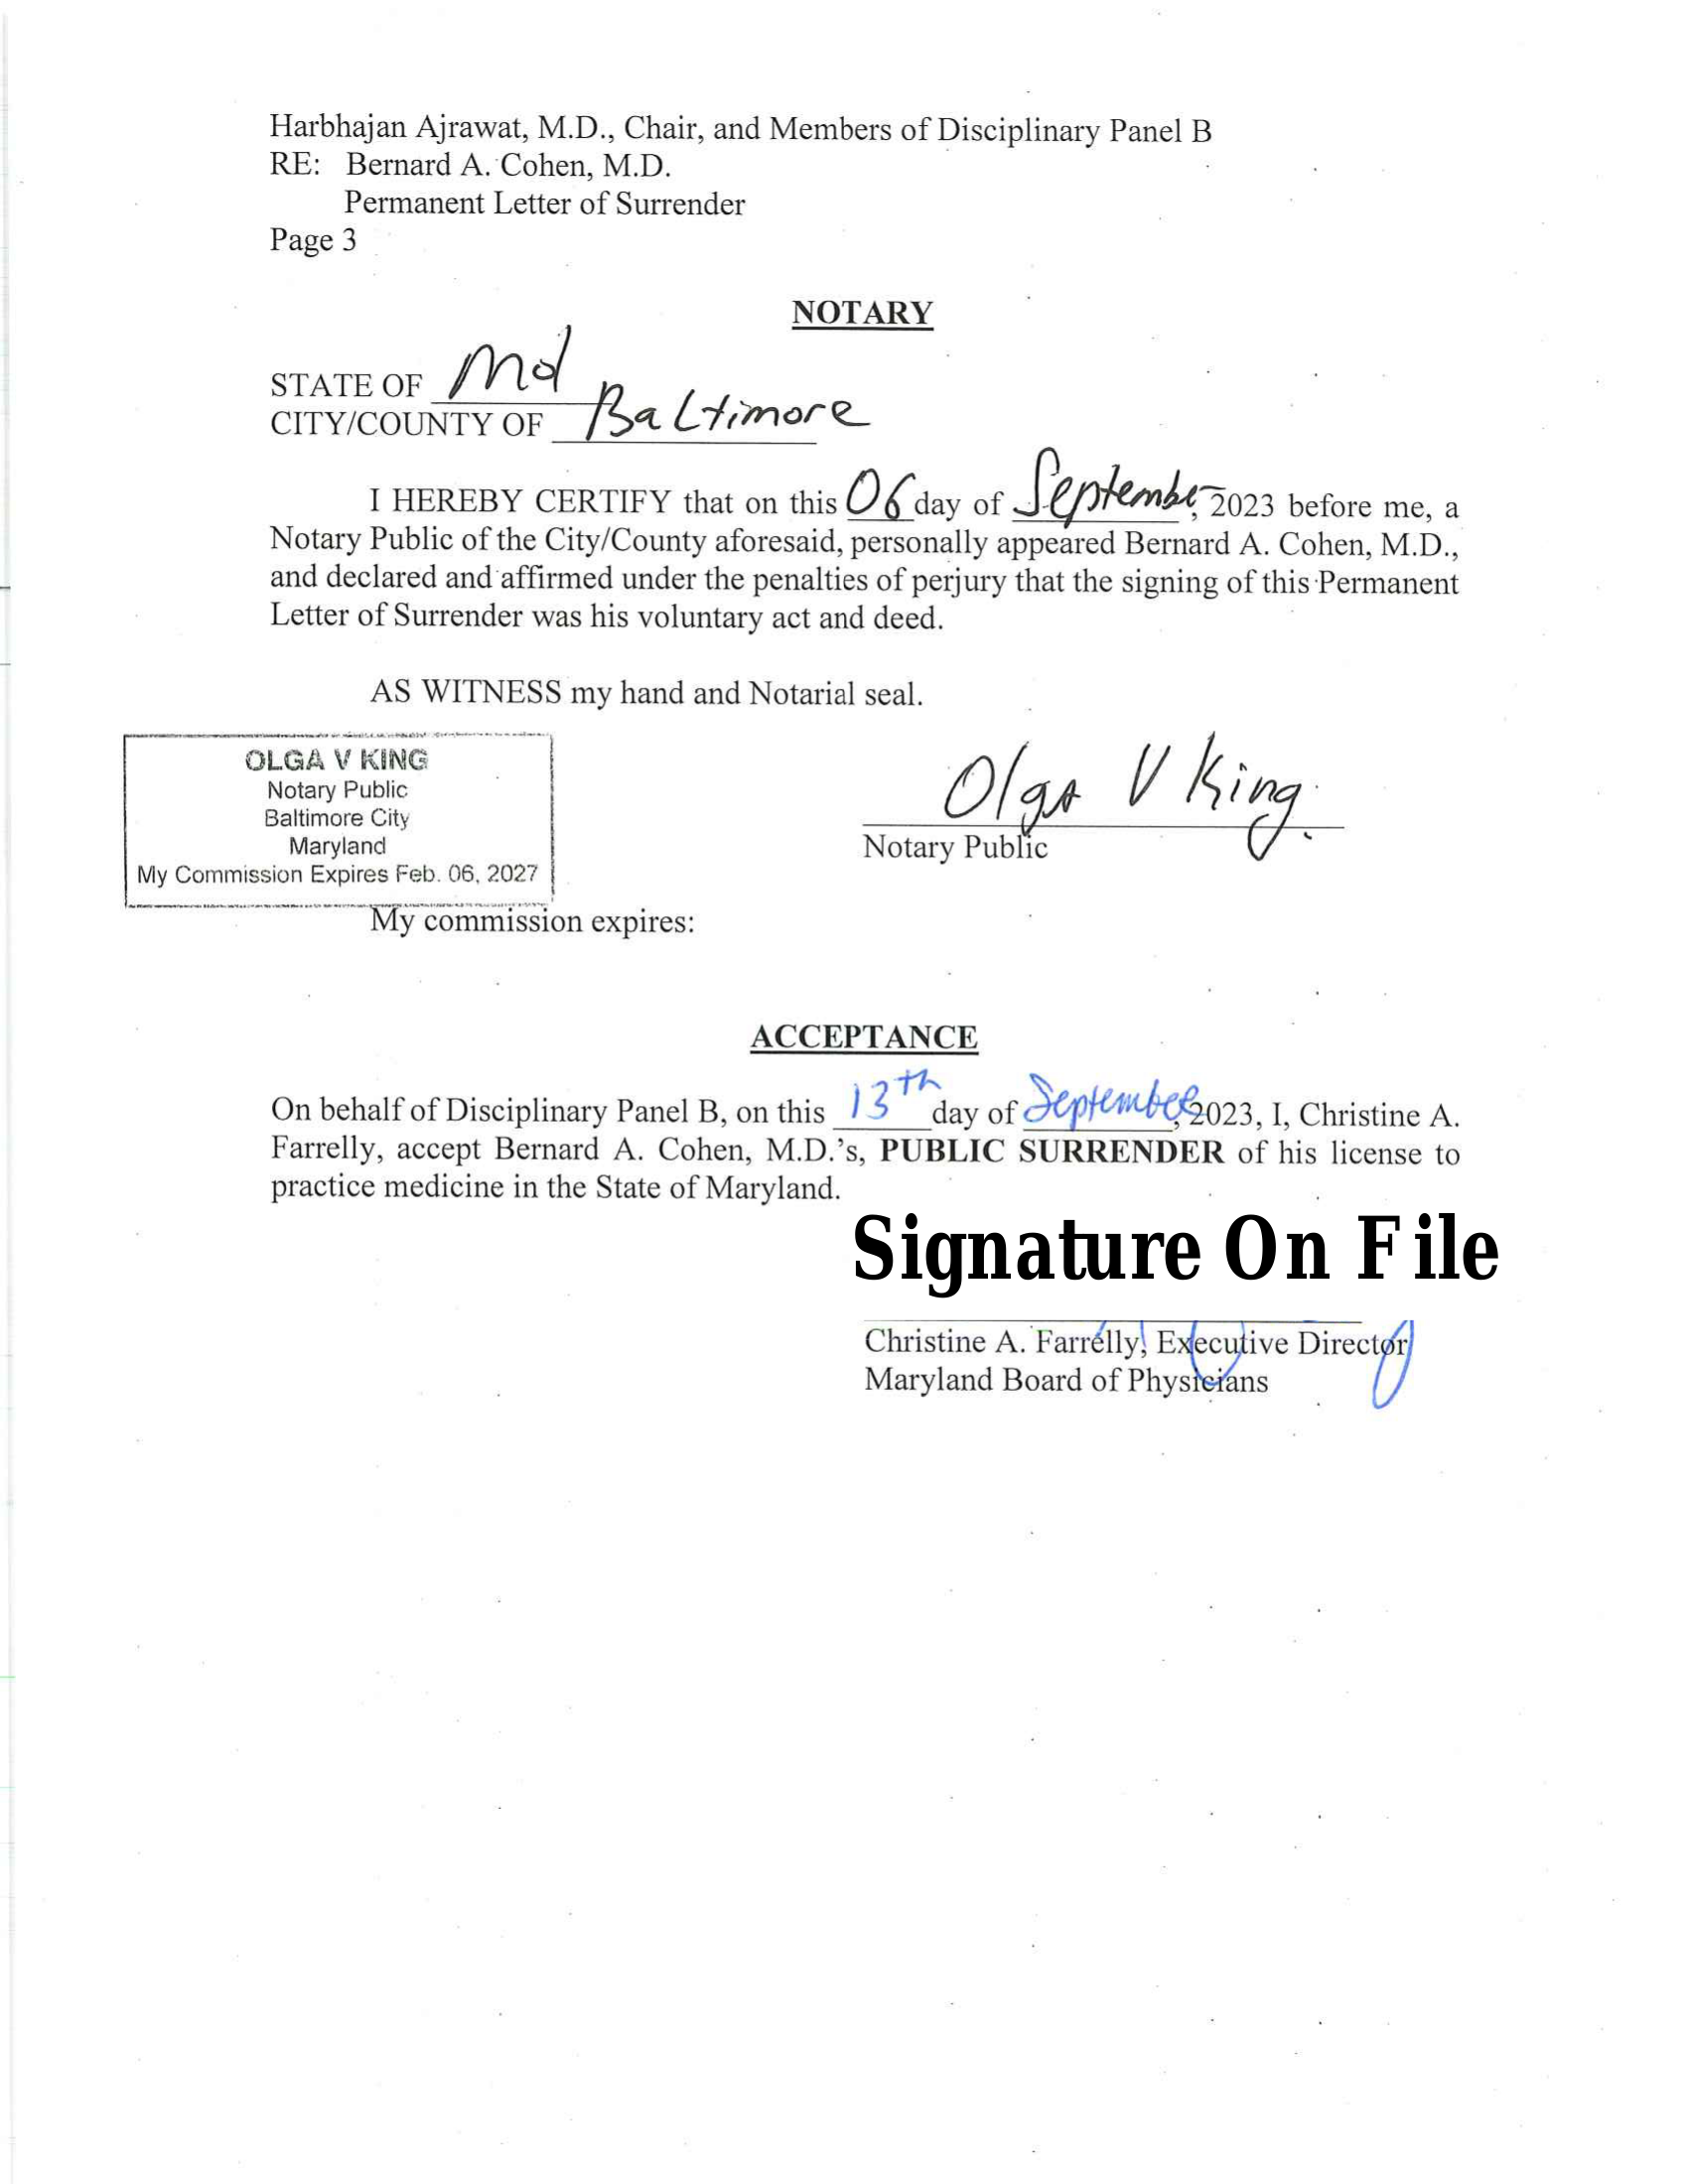 Harbhajan Ajrawat, M.D., Chair, and Members of Disciplinary Panel B
RE: Bernard A. Cohen, M.D.
Permanent Letter of Surrender
Page 3
NOTARY
STATE OF Md
CITY/COUNTY OF Baltimore
I HEREBY CERTIFY that on this 06 day of September, 2023 before me, a
Notary Public of the City/County aforesaid, personally appeared Bernard A. Cohen, M.D.,
and declared and affirmed under the penalties of perjury that the signing of this Permanent
Letter of Surrender was his voluntary act and deed.
AS WITNESS my hand and Notarial seal.
OLGA V KING
Notary Public
Baltimore City
Maryland
My Commission Expires Feb. 06, 2027
Olga V King
Notary Public
My commission expires:
ACCEPTANCE
On behalf of Disciplinary Panel B, on this 13th day of September, 2023, I, Christine A.
Farrelly, accept Bernard A. Cohen, M.D.'s, PUBLIC SURRENDER of his license to
practice medicine in the State of Maryland.
Signature On File
Christine A. Farrelly, Executive Director
Maryland Board of Physicians